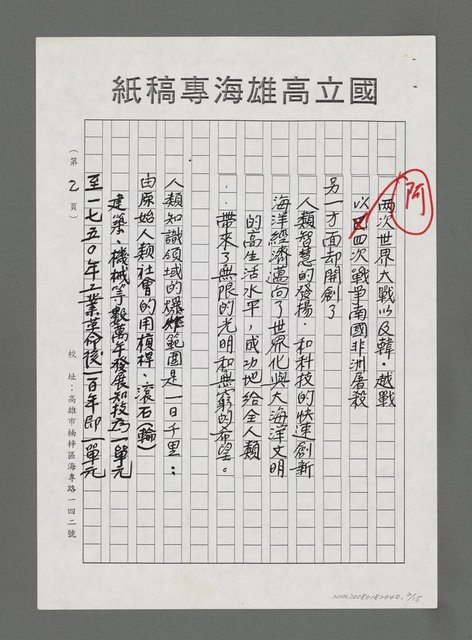 國立高雄海專稿紙
阿
兩次世界大戰以及韓、越戰
以四次戰爭南國非洲屠殺
另一方面却開創了
人類智慧的發揚、和科技的快速創新
海洋經濟邁向了世界化與大海洋文明
的高生活水平,成功地給全人類
帶來了無限的光明和無窮的希望。
人類知識領域的爆炸範圍是一日千里;
由原始人類社會的用槓桿、滾石(輪)
建築、機械等數萬年發展知技為一單元
至一七五〇年工業革命後一百年即一單元
(第2頁)
校址:高雄市楠梓區海專路一四二號
NMTL20080182040, 2/15